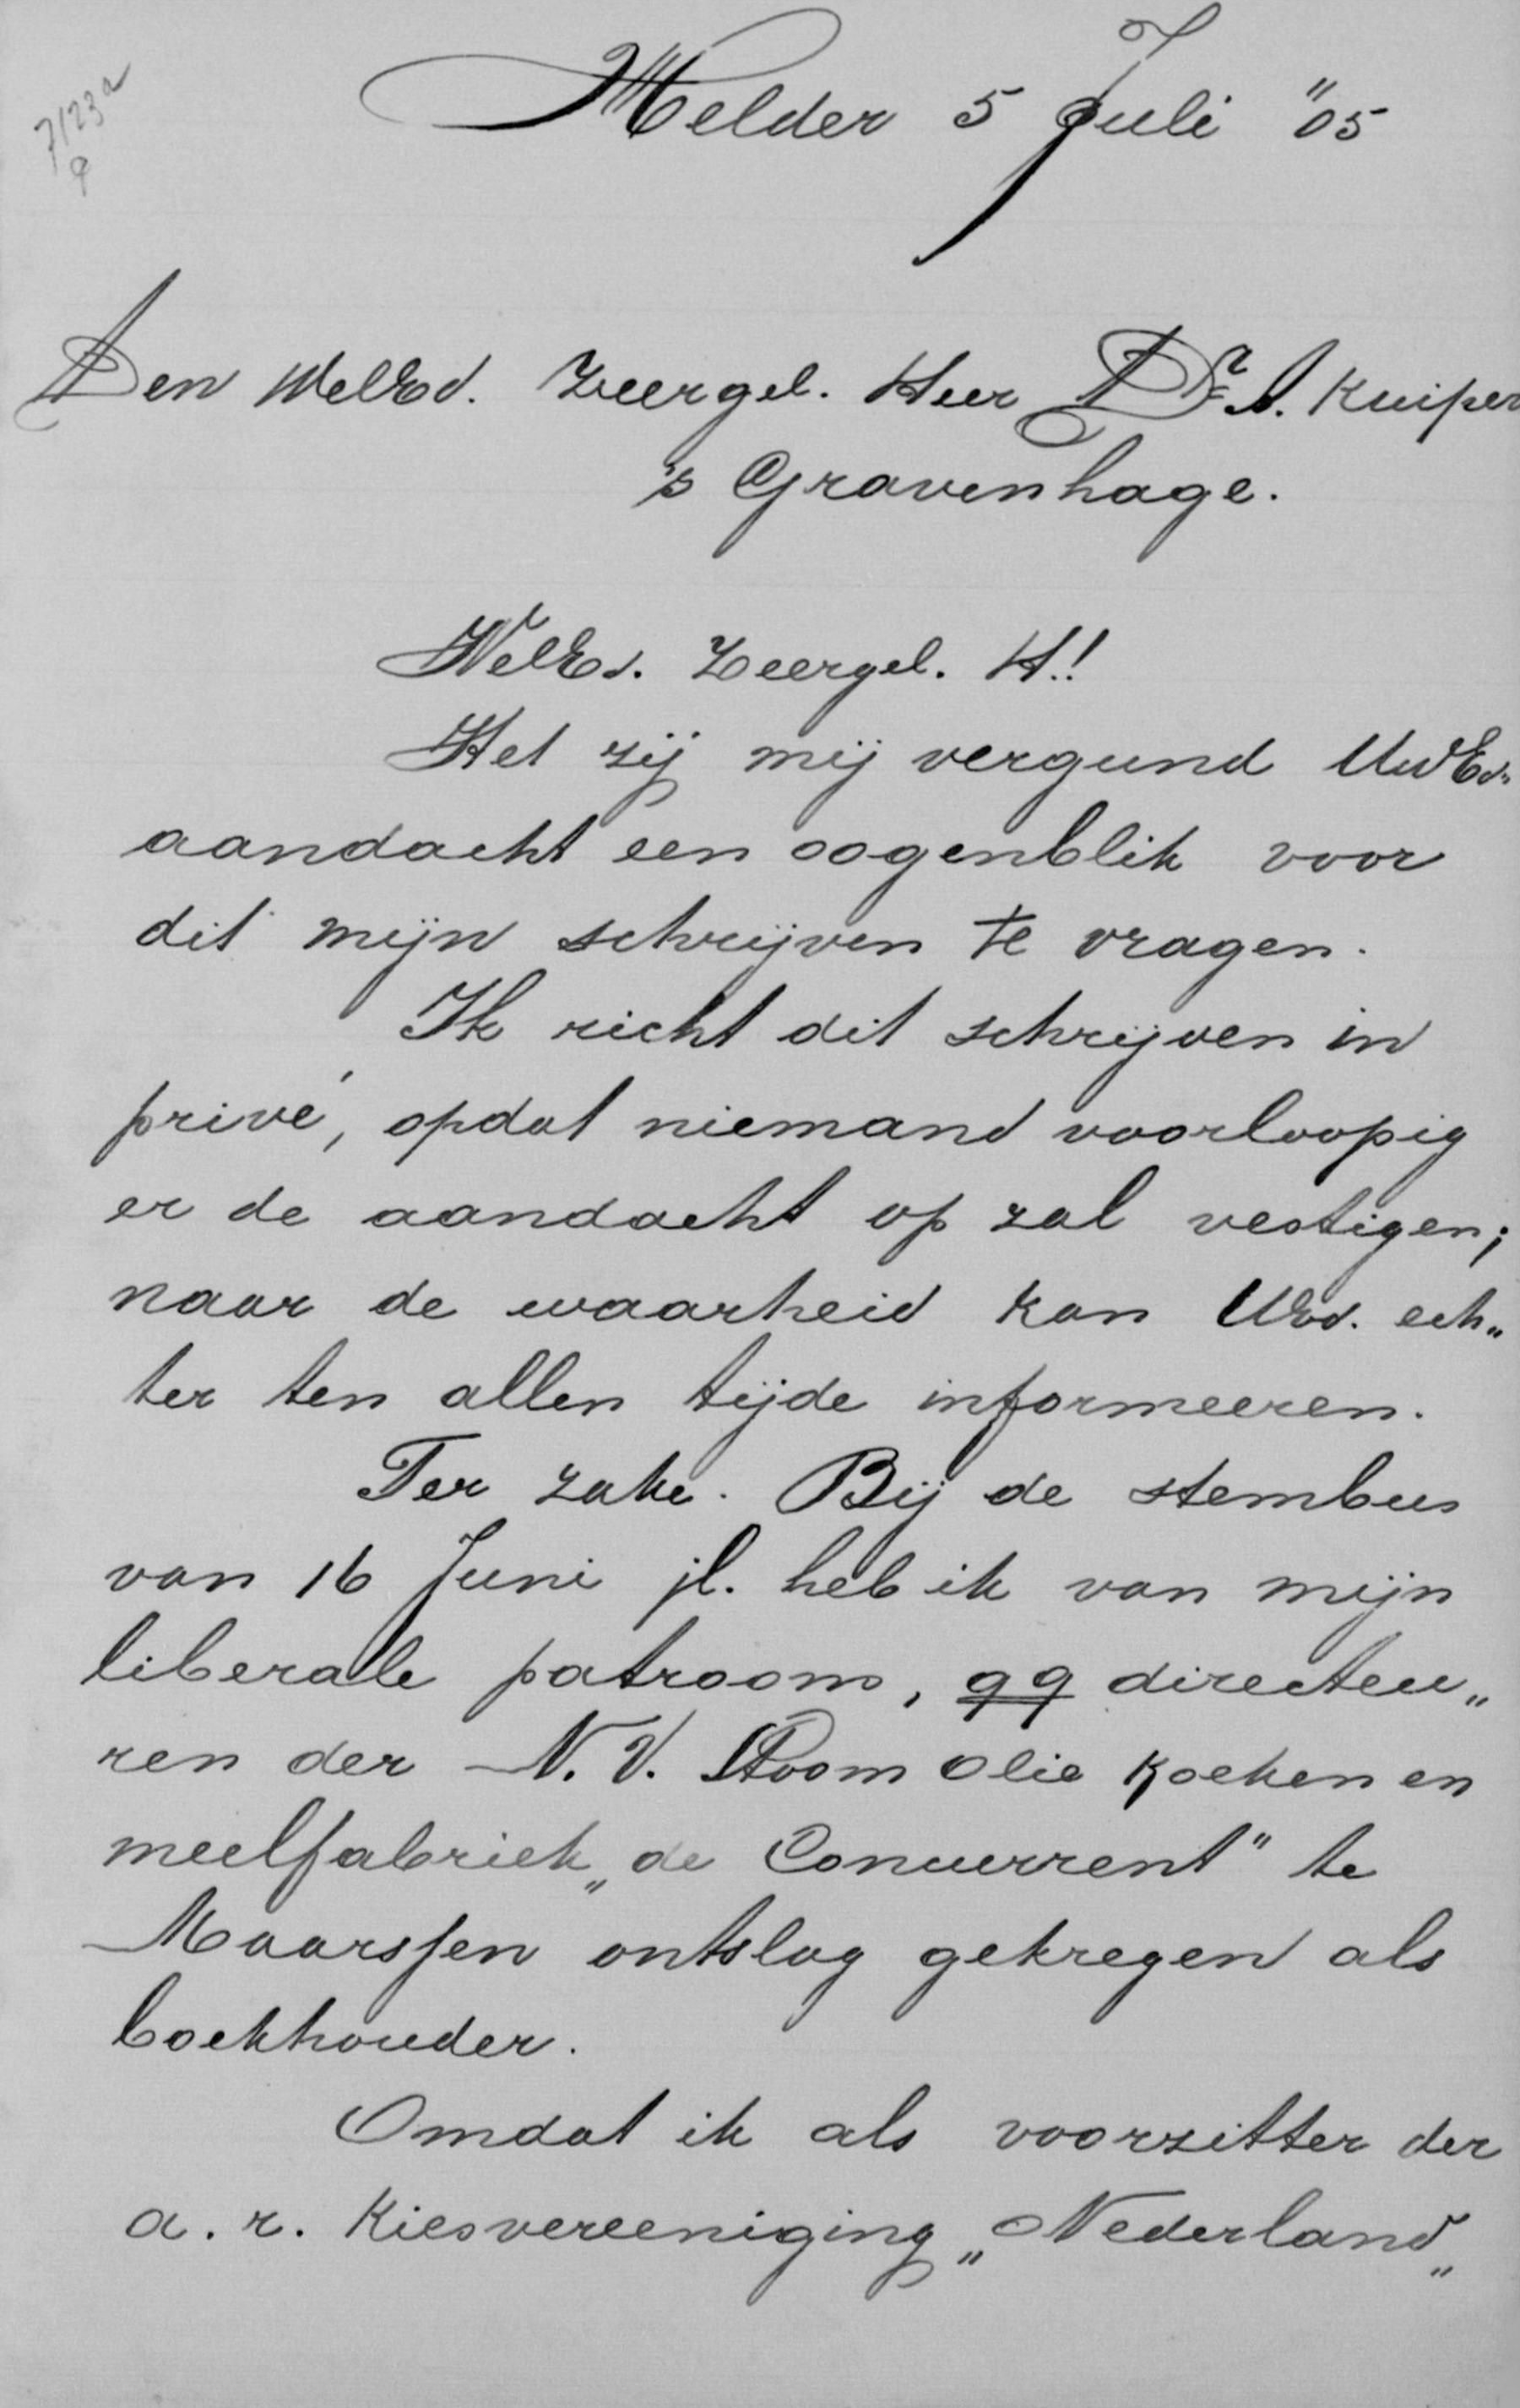 7123a
9
Helder 5 Juli "05
Den WelEd. Zeergel. Heer Dr. A. Kuiper
's Gravenhage.
WelEd. Zeergel. H.!
Het zij mij vergund UwEd.
aandacht een oogenblik voor
dit mijn schrijven te vragen.
Ik richt dit schrijven in
privé, opdat niemand voorloopig
er de aandacht op zal vestigen;
naar de waarheid kan UEd. ech„
ter ten allen tijde informeeren.
Ter zake. Bij de stembus
van 16 Juni jl. heb ik van mijn
liberale patroons, qq directeu„
ren der N.V. Stoom Olie Koeken en
meelfabriek „de Concurrent" te
Maarssen ontslag gekregen als
boekhouder.
Omdat ik als voorzitter der
a.r. Kiesvereeniging „Nederland„